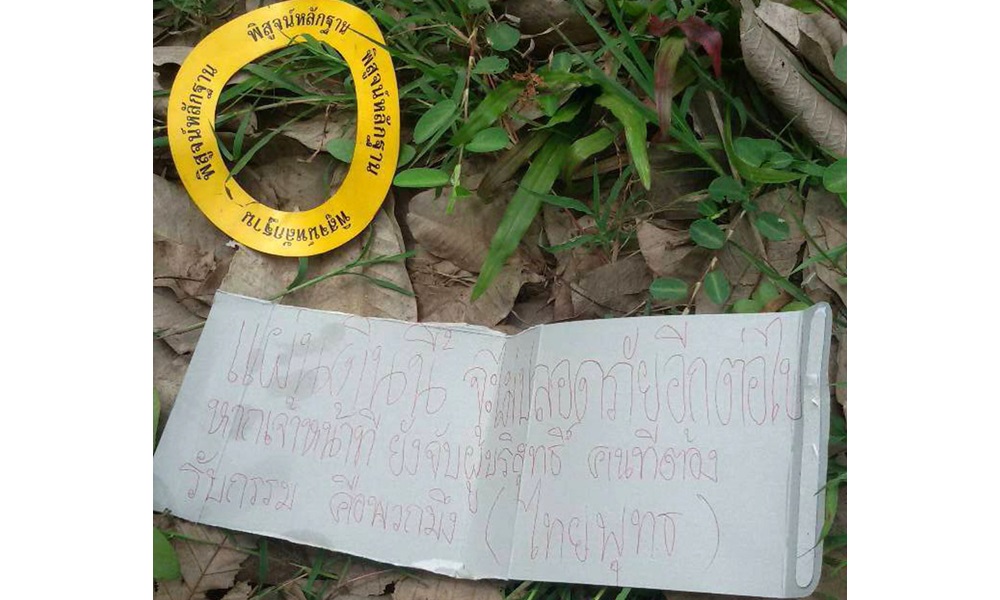 พิสูจน์หลักฐาน
พิสูจน์หลักฐาน
พิสูจน์หลักฐาน
พิสูจน์หลักฐาน
แผ่นดินนี้ จะไม่ปลอดภัยอีกต่อไป
หากเจ้าหน้าที่ ยังจับผู้บริสุทธิ์ คนที่ต้อง
รับกรรม คือพวกมึง (ไทยพุทธ)